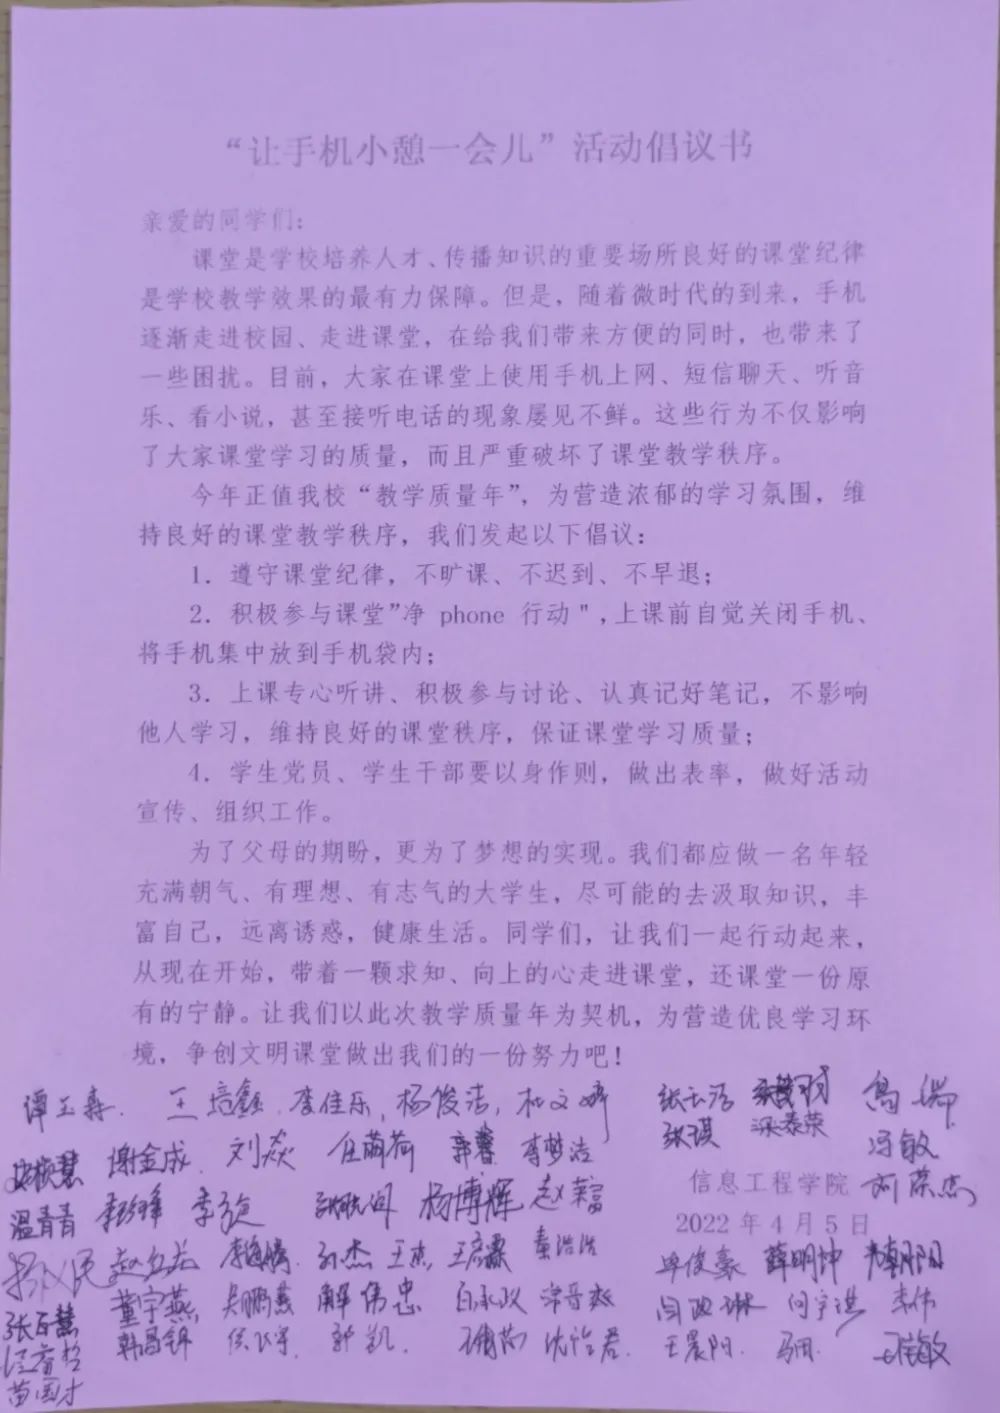 “让手机小憩一会儿”活动倡议书
亲爱的同学们：
课堂是学校培养人才、传播知识的重要场所良好的课堂纪律
是学校教学效果的最有力保障。但是，随着微时代的到来，手机
逐渐走进校园、走进课堂，在给我们带来方便的同时，也带来了
一些困扰。目前，大家在课堂上使用手机上网、短信聊天、听音
乐、看小说，甚至接听电话的现象屡见不鲜。这些行为不仅影响
了大家课堂学习的质量，而且严重破坏了课堂教学秩序。
今年正值我校“教学质量年”，为营造浓郁的学习氛围，维
持良好的课堂教学秩序，我们发起以下倡议：
1. 遵守课堂纪律，不旷课、不迟到、不早退；
2. 积极参与课堂”净 phone 行动＂,上课前自觉关闭手机、
将手机集中放到手机袋内；
3. 上课专心听讲、积极参与讨论、认真记好笔记，不影响
他人学习，维持良好的课堂秩序，保证课堂学习质量；
4. 学生党员、学生干部要以身作则，做出表率，做好活动
宣传、组织工作。
为了父母的期盼，更为了梦想的实现。我们都应做一名年轻
充满朝气、有理想、有志气的大学生，尽可能的去汲取知识，丰
富自己，远离诱惑，健康生活。同学们，让我们一起行动起来，
从现在开始，带着一颗求知、向上的心走进课堂，还课堂一份原
有的宁静。让我们以此次教学质量年为契机，为营造优良学习环
境，争创文明课堂做出我们的一份努力吧！
王培鑫 李佳乐 杨俊洁 杜文婷 高瑞
张琪 梁泰荣
谢金成 刘焱 任萌荷 郭馨 李梦洁 冯敏
信息工程学院
温青青 杨博辉
2022 年 4 月 5 日
孙杰 王杰 秦浩浩 单俊豪 薛明坤 韦朝阳
张百慧 董宇燕 吴鹏燕 解伟忠 李伟
韩昌锦 郭凯 沈怡君 王晨阳 马田 王佳敏
苗国才